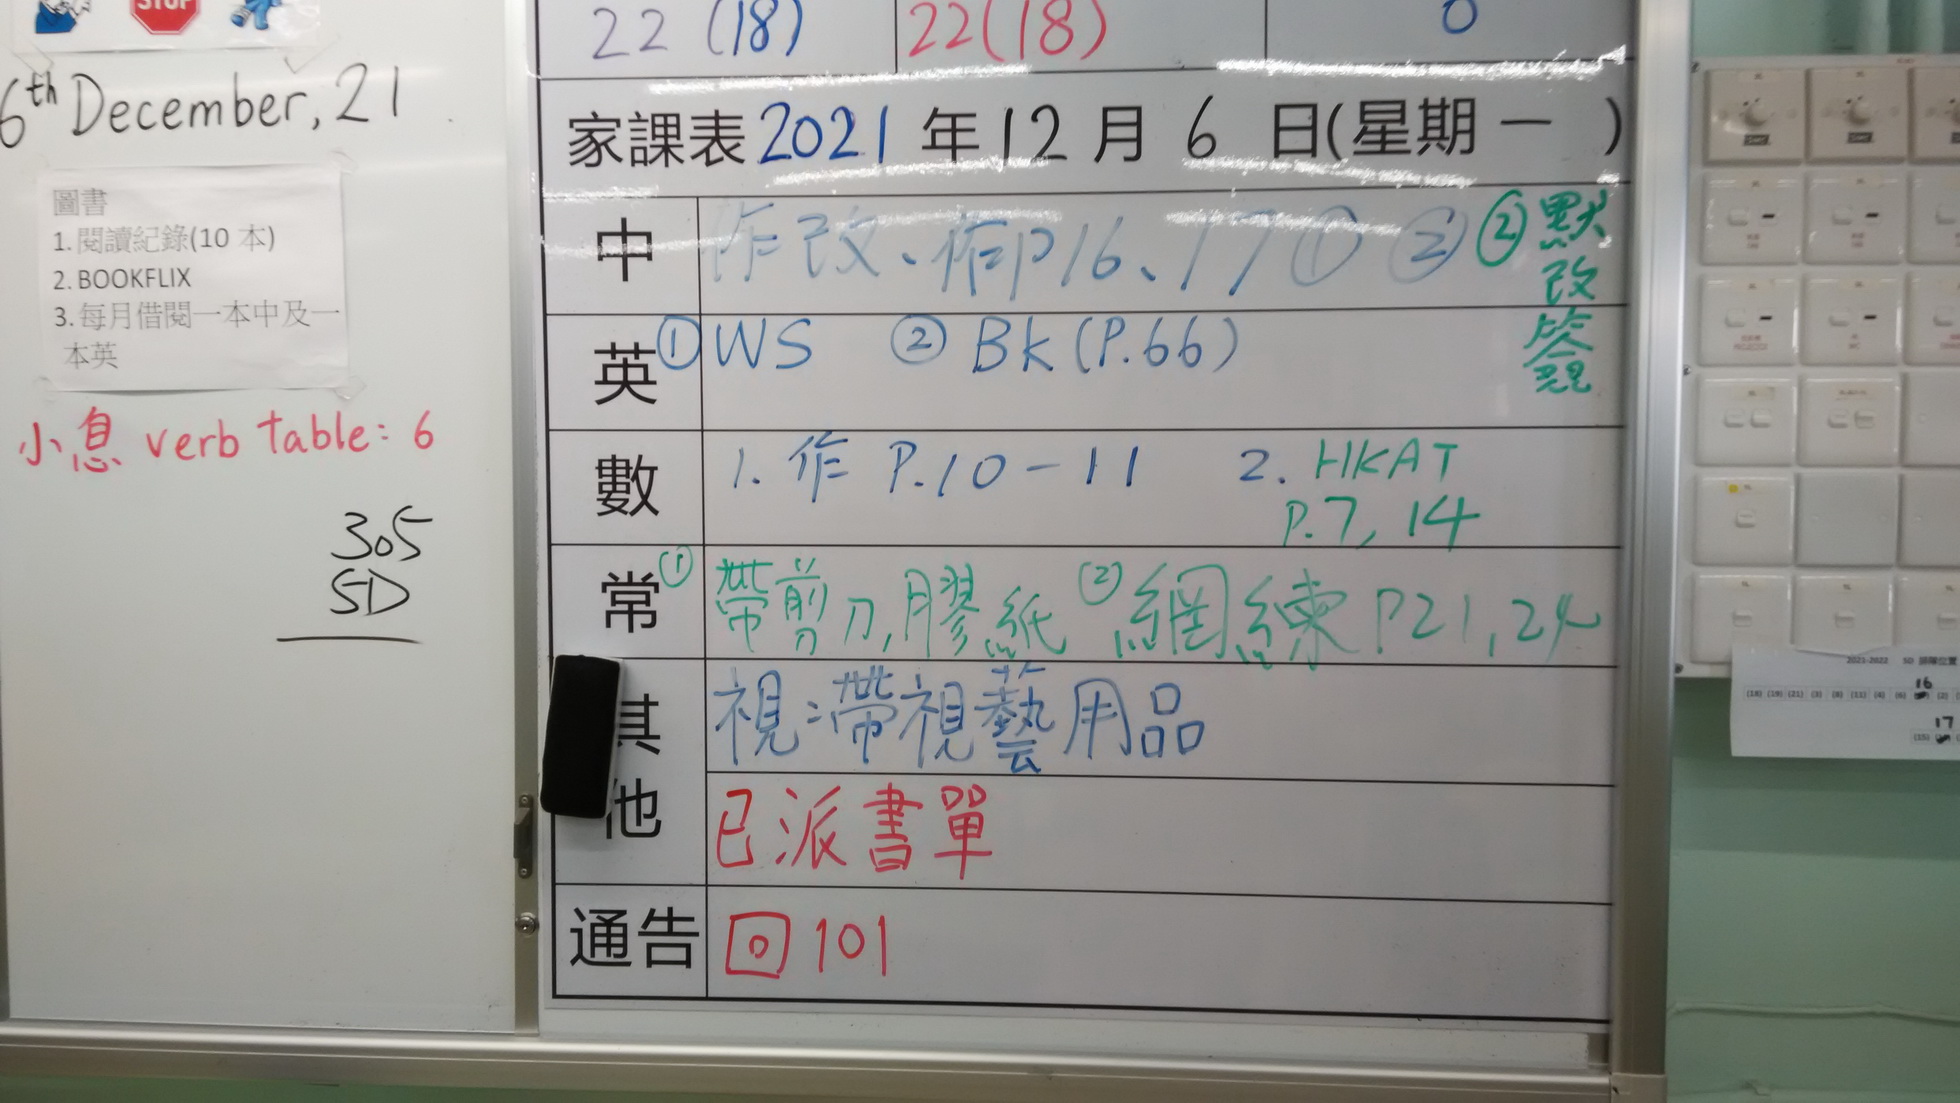 STOP
6th December, 21
圖書
1. 閱讀紀錄(10 本)
2. BOOKFLIX
3. 每月借閱一本中及一
本英
小息 verb table: 6
305
5D
22 (18) 22(18) 0
家課表 2021 年 12 月 6 日(星期一 )
中 作改、作P16、17 ① ② ② 默
改
簽
英 ① WS ② Bk (P.66)
數 1. 作 P.10-11 2. HKAT
P.7, 14
常 (1) 帶剪刀,膠紙 (2) 網練 P21, 24
其他 視:帶視藝用品
已派書單
通告 回 101
2021-2022 5D
16
17